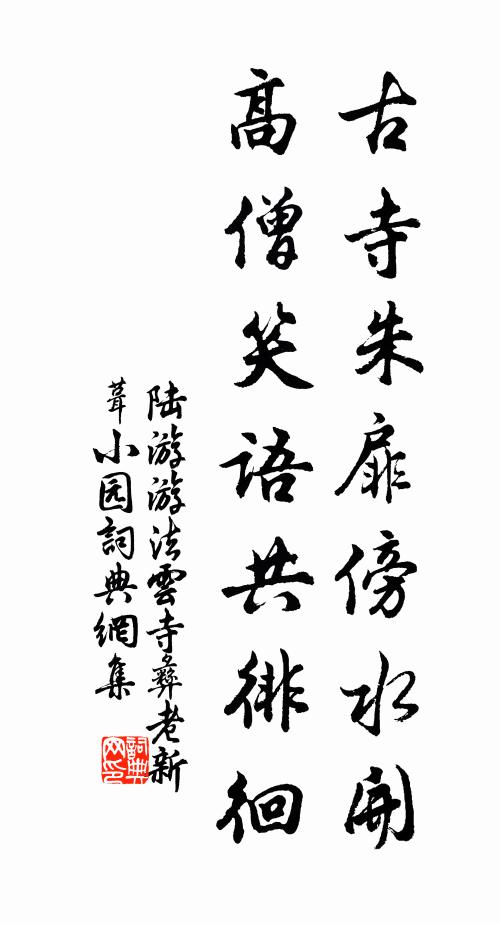 古寺朱扉傍水開
高僧笑語共徘徊
陆游游法雲寺彝老新
葺小园詞典網集
詞典网印